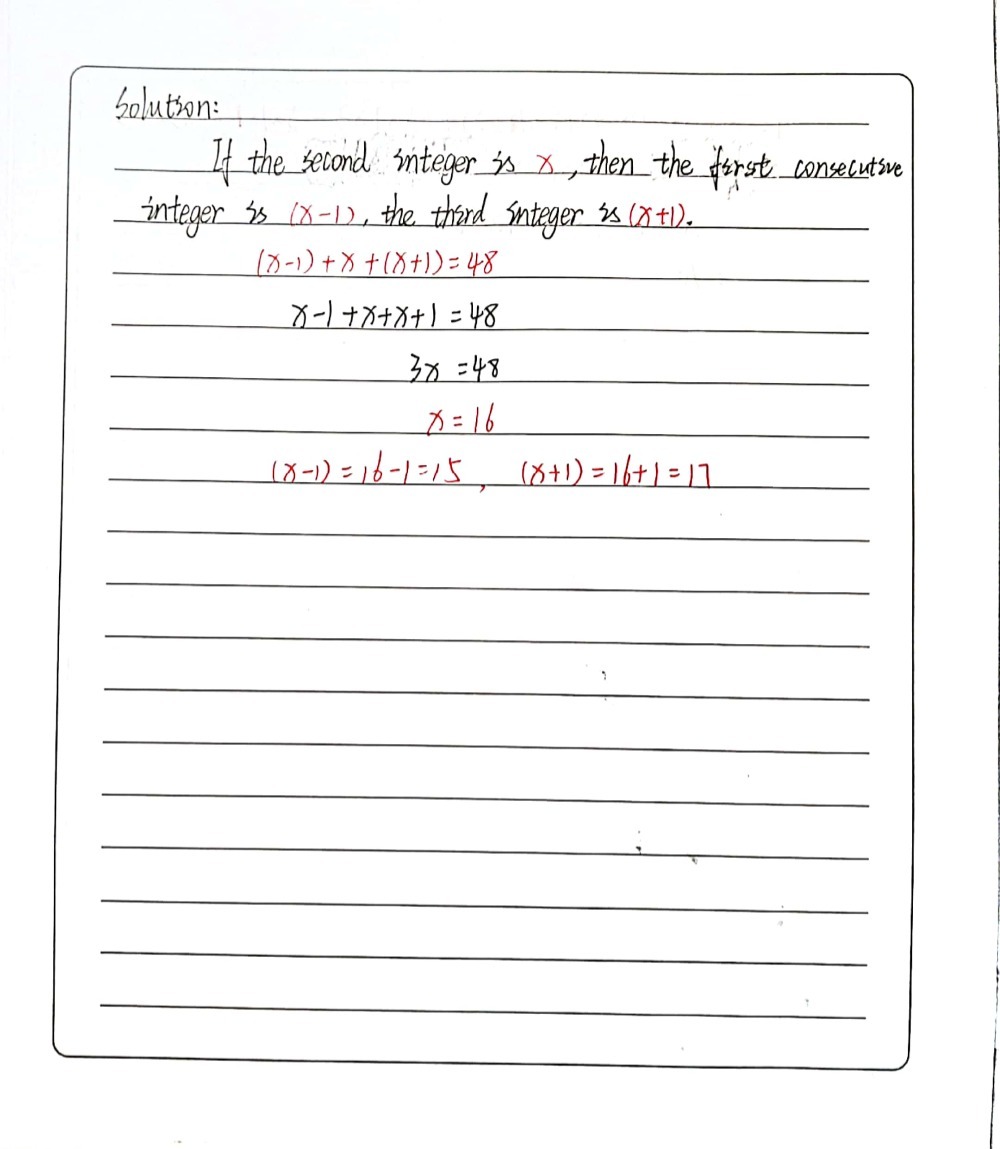 Solution:
If the second integer is x, then the first consecutive
integer is (x-1), the third integer is (x+1).
(x-1)+x+(x+1)=48
x-1+x+x+1=48
3x=48
x=16
(x-1)=16-1=15, (x+1)=16+1=17